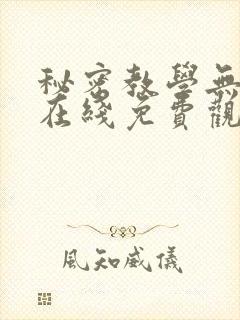 秘密教學無
在綫免費觀
風知威儀